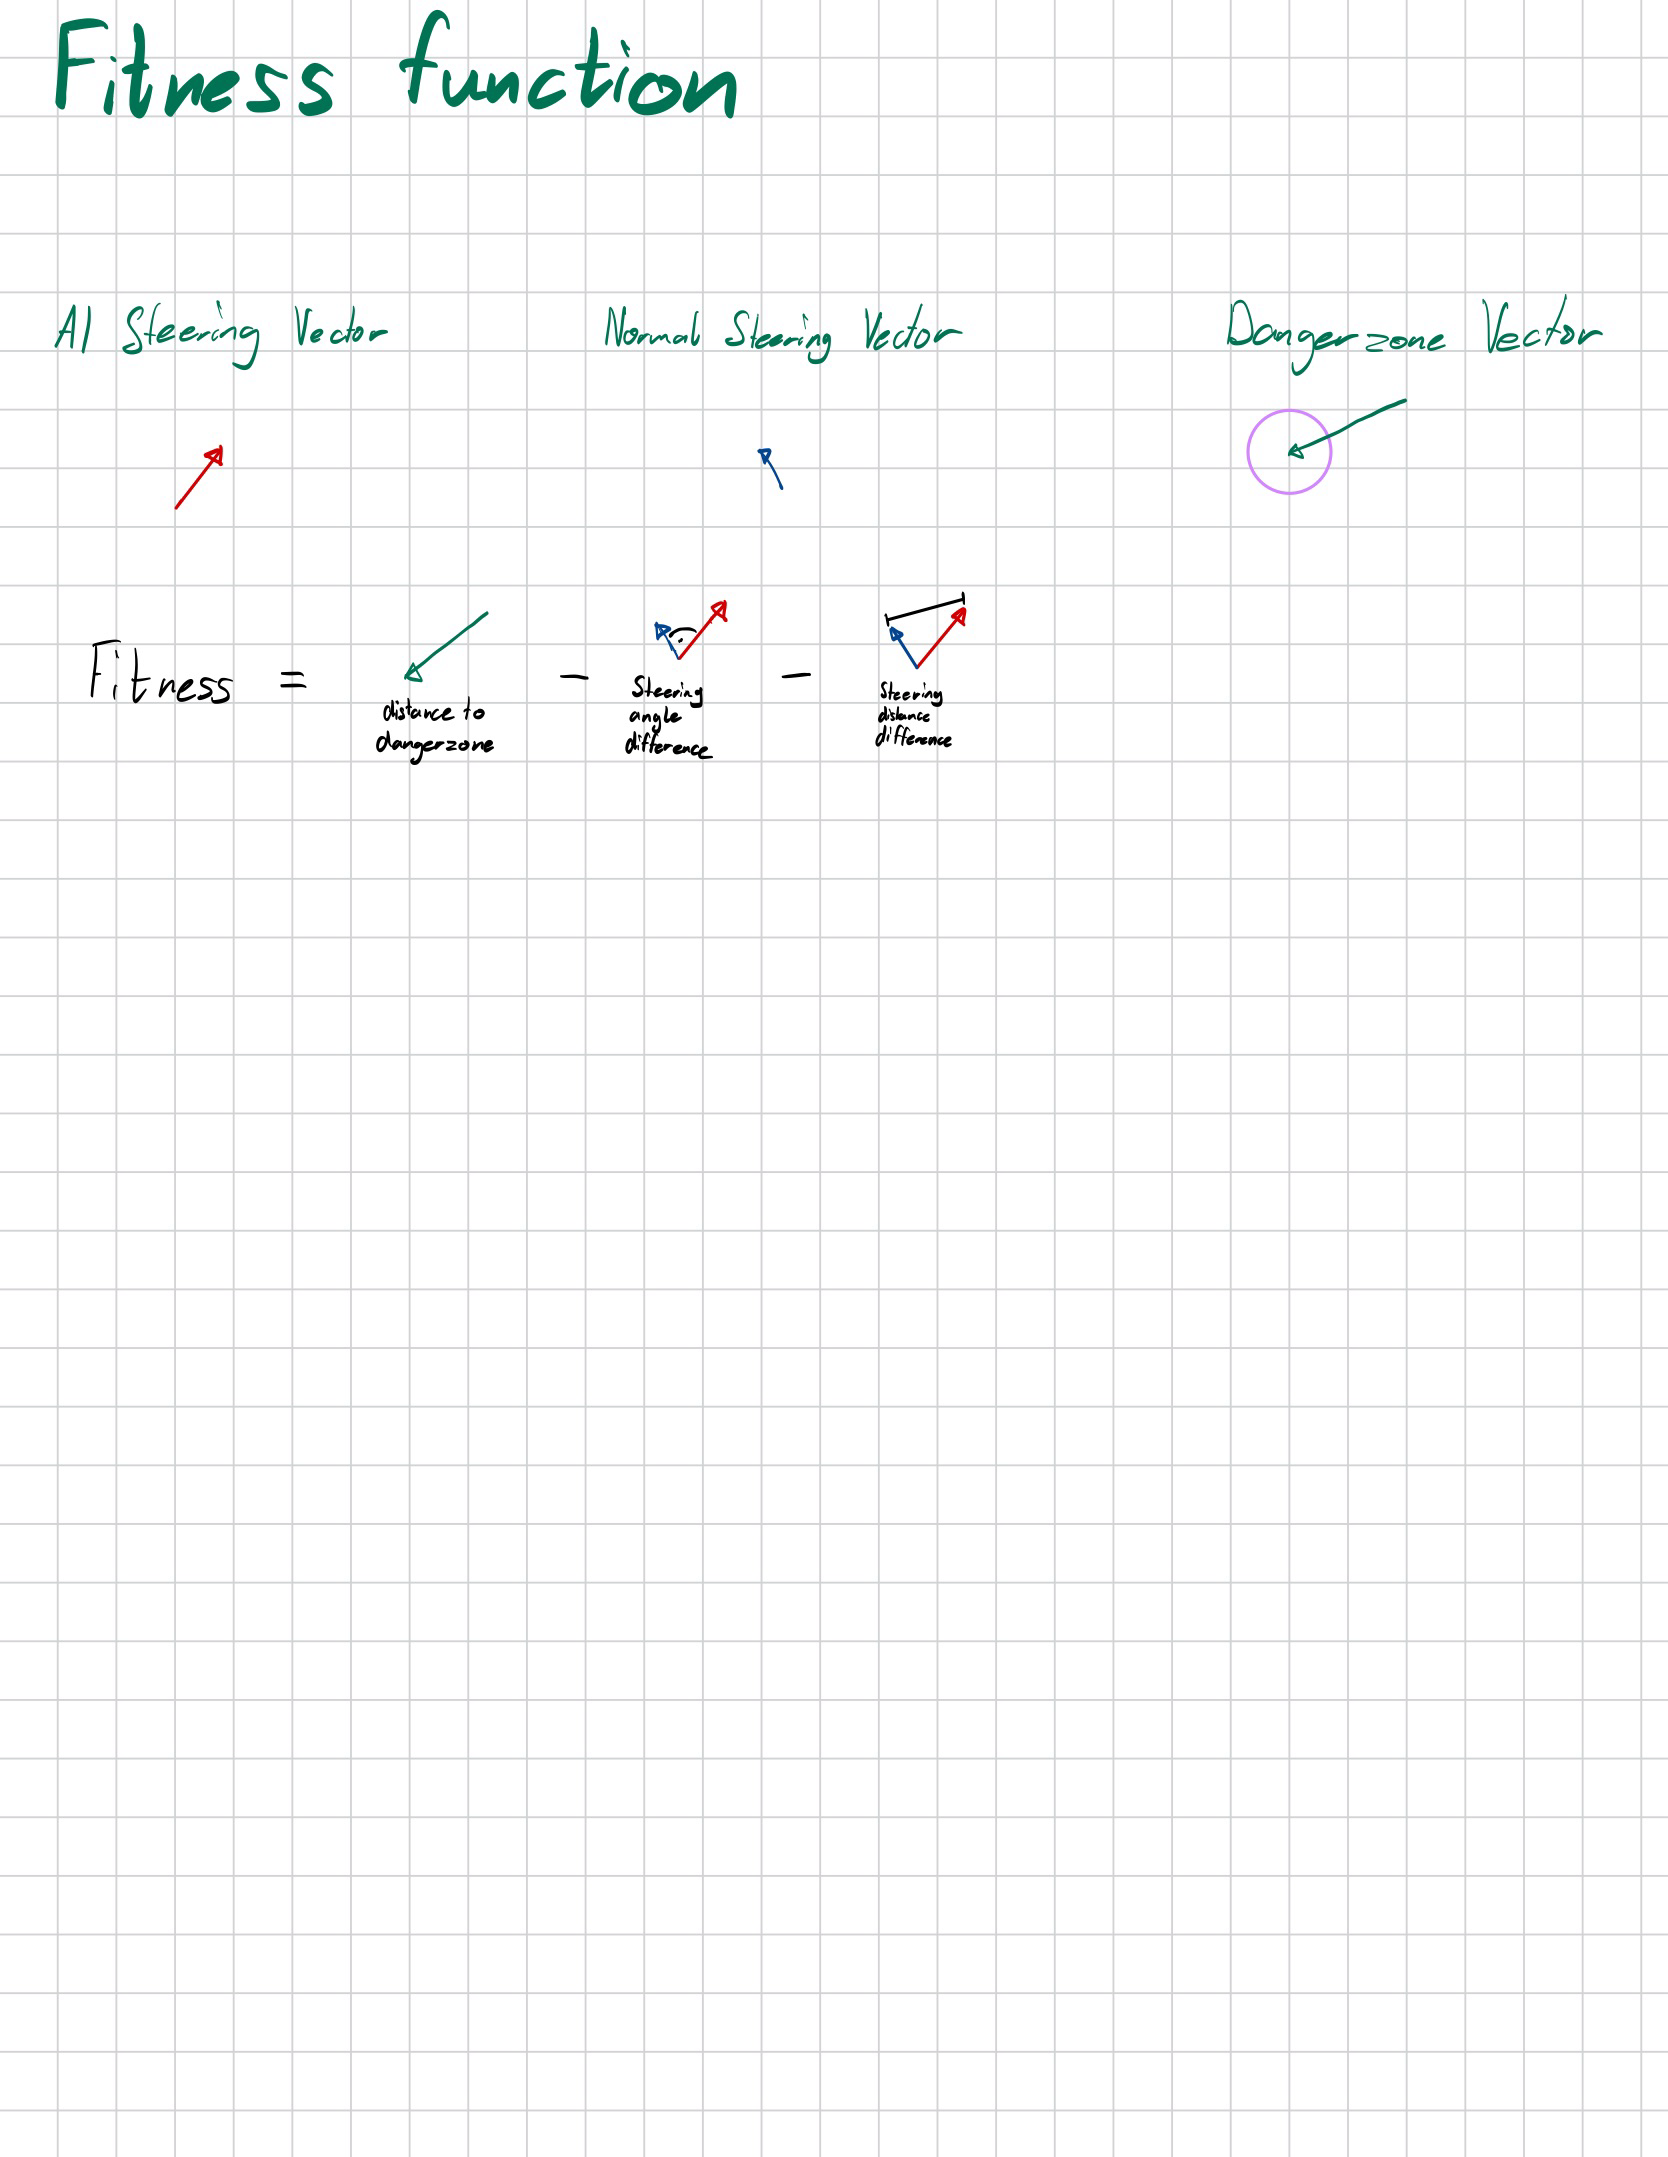 Fitness function
AI Steering Vector
Normal Steering Vector
Dangerzone Vector
Fitness = - -
distance to
dangerzone
Steering
angle
difference
Steering
distance
difference